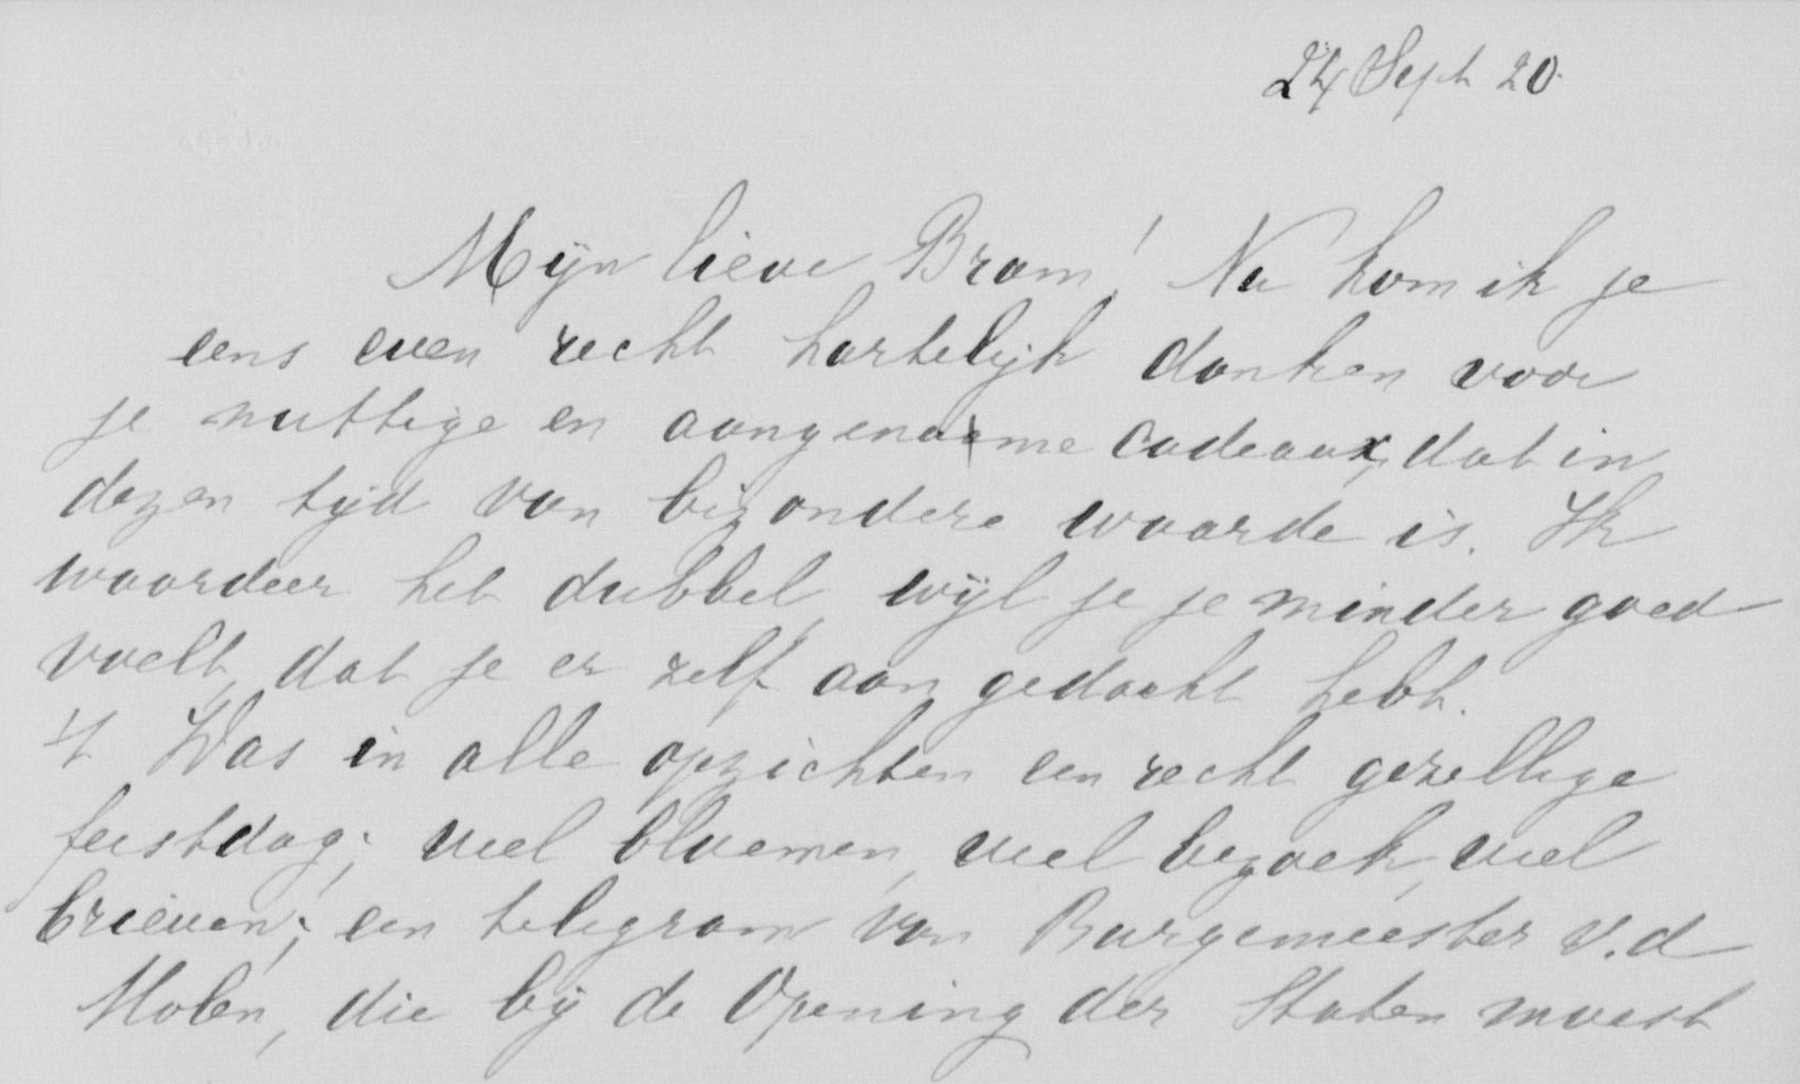 24 Sept 20.
Mijn lieve Bram! Nu kom ik je
eens even recht hartelijk danken voor
je nuttige en aangename cadeaux, dat in
dezen tijd van bizondere waarde is. Ik
waardeer het dubbel, wijl je je minder goed
voelt, dat je er zelf aan gedacht hebt.
't Was in alle opzichten een recht gezellige
feestdag; veel bloemen, veel bezoek, veel
brieven; een telegram van Burgemeester v.d
Molen, die bij de Opening der Staten moest